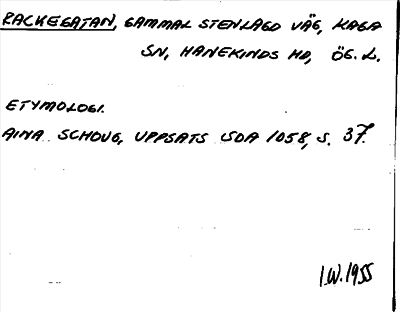 RACKEGATAN, GAMMAL STENLAGD VÄG, KAGA
SN, HANEKINDS HD, ÖG. L.
ETYMOLOGI.
AINA SCHOUG, UPPSATS LSDA 1058, S. 37.
I.W. 1955